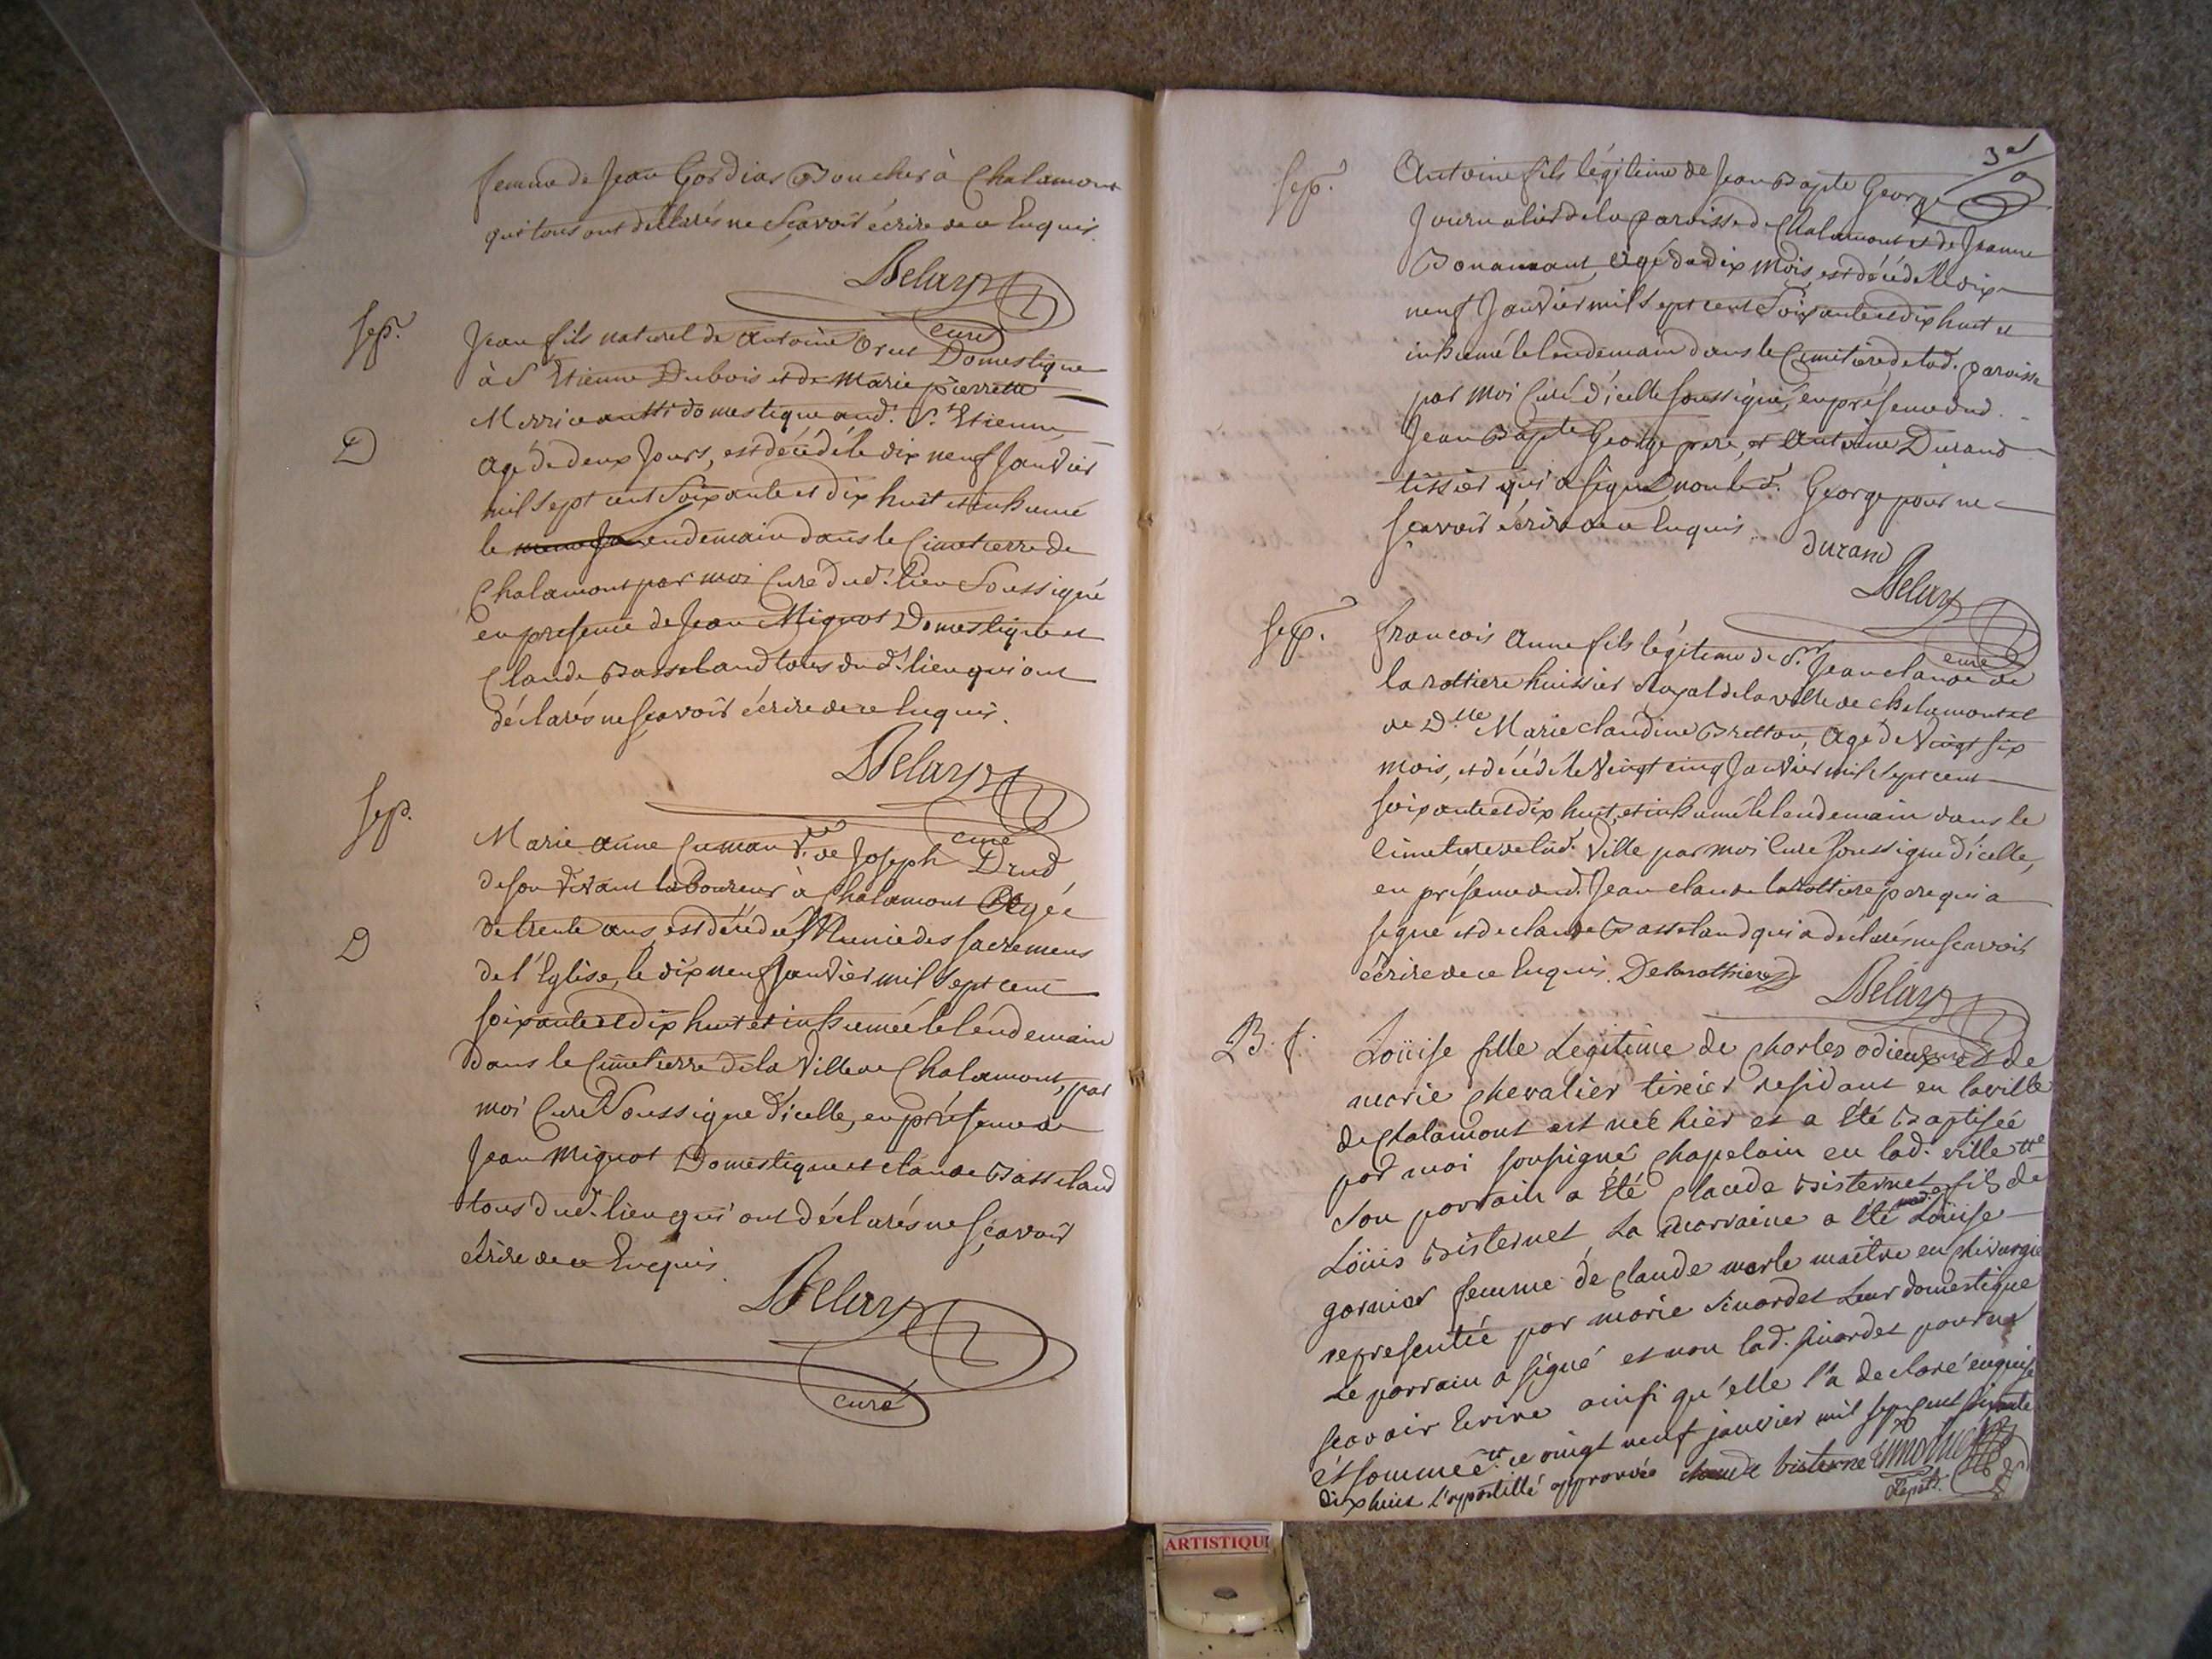 femme de Jean Gordias Boucher à Chalamont
qui tous ont déclarés ne sçavoir écrire de ce Enquis.
Delaye
curé
Sep.
Jean fils naturel de Antoine Domestique
à St Etienne Dubois et de Marie pierrette
aussi domestique aud. St Etienne
D
agé de deux Jours, est décédé le dix neuf Janvier
mil sept cent Soixante et dix huit et inhumé
le lendemain dans le Cimetierre de
Chalamont par moi Curé dud. lieu Soussigné
en presence de Jean Mignot Domestique et
Claude Basseland tous dud. lieu qui ont
déclarés ne sçavoir écrire de ce Enquis.
Delaye
curé
Sep.
Marie anne Cuman Ve. de Joseph Drud
de son vivant laboureur à Chalamont Agée
de trente ans est décédée Munie des sacremens
D
de l'Eglise, le dix neuf Janvier mil sept cent
soixante et dix huit et inhumée le lendemain
dans le Cimetierre de la Ville de Chalamont, par
moi Curé Soussigné d'icelle, en présence de
Jean Mignot Domestique et claude Basseland
tous dud. lieu qui ont déclarés ne sçavoir
écrire de ce Enquis.
Delaye
curé
3e/
Sep.
Antoine fils légitime de Jean Bapte George
Journalier de la paroisse de Chalamont et de Jeanne
agé de dix mois, est décédé le dix
neuf Janvier mil sept cent Soixante et dix huit et
inhumé le lendemain dans le Cimitiere de lad. paroisse
par moi Curé d'icelle soussigné, en présence dud.
Jean Bapte George pere, et Antoine Durand
tissier qui a signé non led. George pour ne
sçavoir écrire de ce Enquis.
durand
Delaye
curé
Sep.
francois Anne fils légitime de Sr. Jean claude de
la rottiere huissier Royal de la ville de Chalamont et
de Dlle Marie claudine Bretton, Agé de Vingt six
mois, est décédé le Vingt cinq Janvier mil sept cent
soixante et dix huit, et inhumé le lendemain dans le
Cimetiere de lad. Ville par moi Curé soussigné d'icelle,
en présence dud. Jean claude la rottiere pere qui a
signé et de claude Basseland qui a déclarés ne scavoir
écrire de ce Enquis. Delarothiere
Delaye
curé
B. f.
Loüise fille Legitime de charles odieux et de
marie chevalier tixier residant en la ville
de Chalamont est neé hier et a été Baptisée
par moi soussigné chapelain en lad. ville
Son parrain a été claude Bisternet fils de
Loüis Bisternet La marraine a été Loüise
garnier femme de claude merle maitre en chirurgie
representeé par marie sivardet Leur domestique
Le parrain a signé et non lad. sivardet pour ne
scavoir Ecrire ainsi qu'elle l'a declaré enquise
et sommeé ce vingt neuf janvier mil sept cent soixante
dix huit L'apostille approuvée claude bisterne